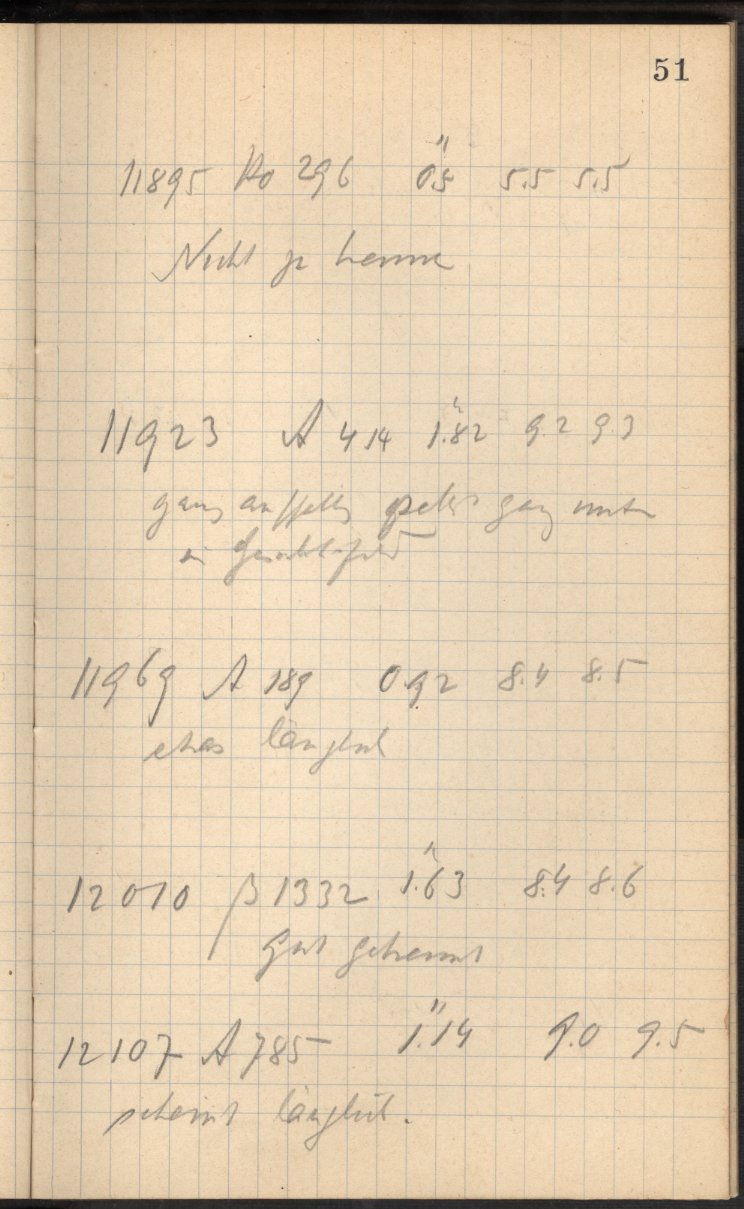 51
11895 Ho 296 0.″5 5.5 5.5
Nicht zu trennen
11923 A 414 1.″82 9.2 9.3
ganz auffällig ganz unten
im Gesichtsfeld
11969 A 189 0.92 8.4 8.5
etwas länglich
12010 β 1332 1.″63 8.4 8.6
Gut getrennt
12107 A 785 1.″14 9.0 9.5
scheint länglich.